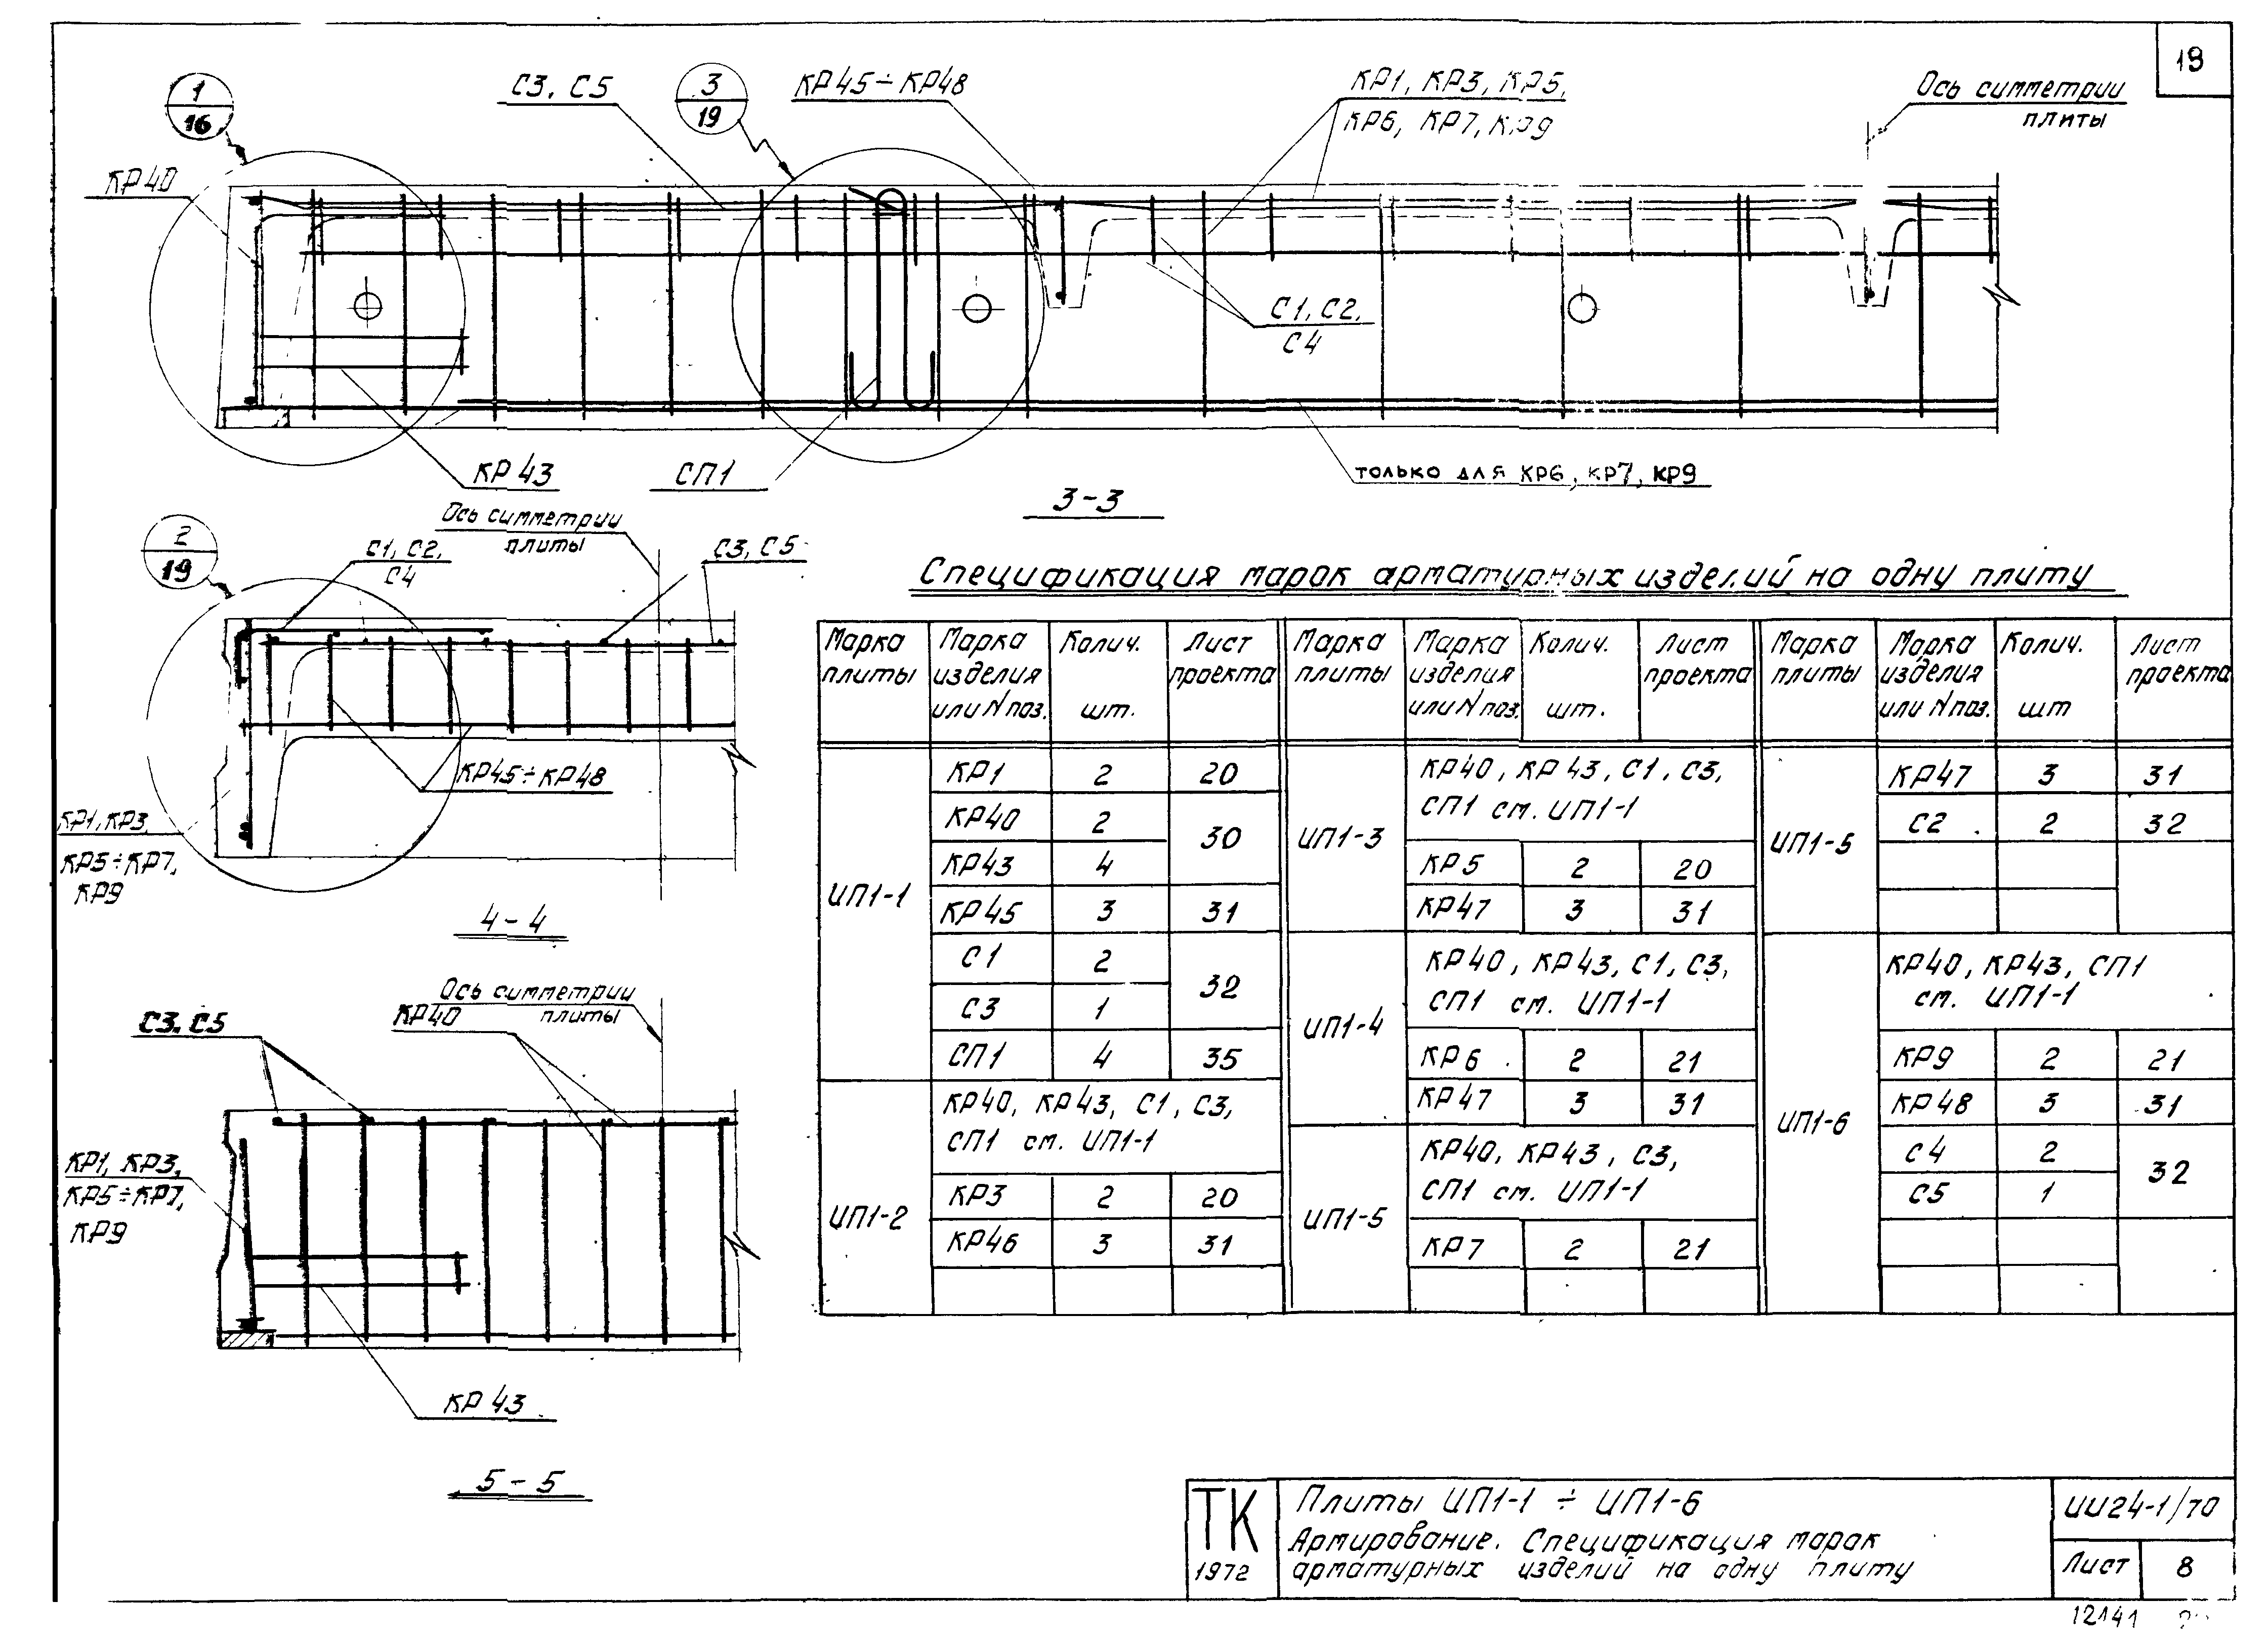 19
1
16
С3, С5
3
19
КР45÷КР48
КР1, КР3, КР5,
КР6, КР7, КР9
Ось симметрии
плиты
КР40
С1, С2,
С4
КР43
СП1
только для КР6, КР7, КР9
3-3
2
19
С1, С2,
С4
Ось симметрии
плиты
С3, С5
КР45÷КР48
КР1, КР3,
КР5÷КР7,
КР9
4-4
С3, С5
Ось симметрии
плиты
КР40
КР1, КР3,
КР5÷КР7,
КР9
КР43
5-5
Спецификация марок арматурных изделий на одну плиту
Марка плиты | Марка изделия или N поз. | Колич. шт. | Лист проекта | Марка плиты | Марка изделия или N поз. | Колич. шт. | Лист проекта | Марка плиты | Марка изделия или N поз. | Колич. шт | Лист проекта
ИП1-1
КР1 2 20
КР40 2 30
КР43 4
КР45 3 31
С1 2 32
С3 1
СП1 4 35
ИП1-2
КР40, КР43, С1, С3,
СП1 см. ИП1-1
КР3 2 20
КР46 3 31
ИП1-3
КР40, КР43, С1, С3,
СП1 см. ИП1-1
КР5 2 20
КР47 3 31
ИП1-4
КР40, КР43, С1, С3,
СП1 см. ИП1-1
КР6 2 21
КР47 3 31
ИП1-5
КР40, КР43, С3,
СП1 см. ИП1-1
КР7 2 21
ИП1-5
КР47 3 31
С2 2 32
ИП1-6
КР40, КР43, СП1
см. ИП1-1
КР9 2 21
КР48 3 31
С4 2 32
С5 1
ТК
1972
Плиты ИП1-1 ÷ ИП1-6
Армирование. Спецификация марок
арматурных изделий на одну плиту
ИИ24-1/70
Лист 8
12141